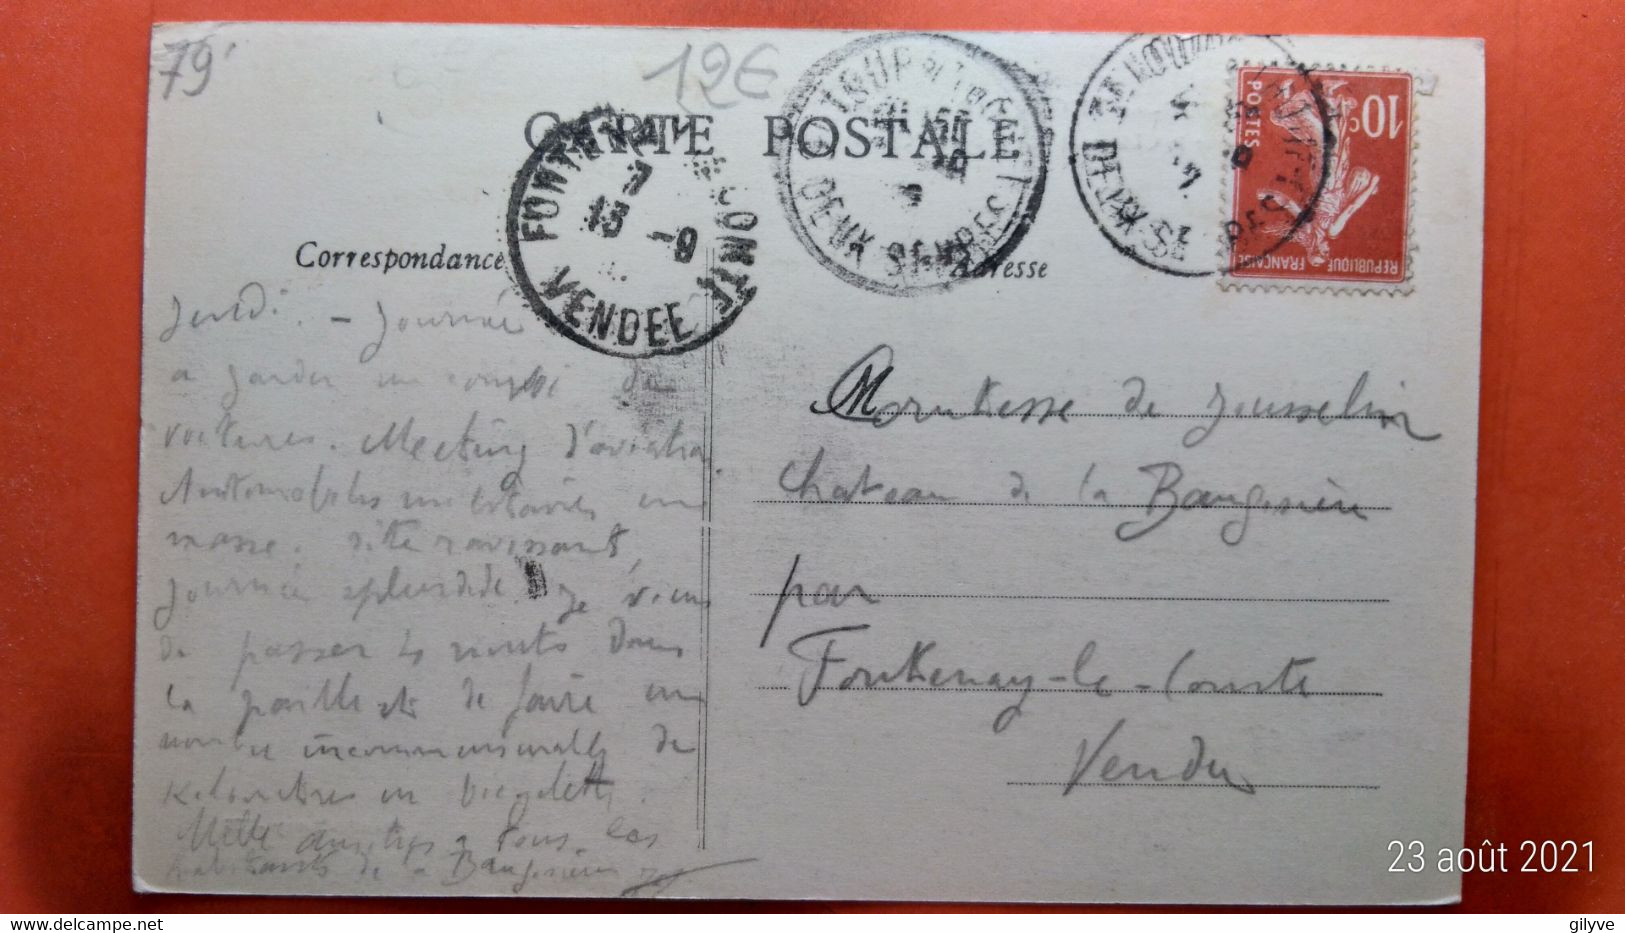 79
12€
CARTE POSTALE
Correspondance
Adresse
FONTENAY LE COMTE
7
13 -9
VENDEE
DEUX SEVRES
DEUX SEVRES
10c
POSTES
REPUBLIQUE FRANÇAISE
Jeudi. - Journée
a garder un convoi de
voitures. Meeting d'aviation.
Automobiles militaires en
masse. Site ravissant,
journée splendide. Je viens
de passer 4 nuits dans
la paille et de faire un
nombre incommensurable de
Kilomètres en bicyclette.
Mille amitiés à tous les
habitants de la Baugisière
Comtesse de Jousselin
Chateau de la Baugisière
par
Fontenay-le-Comte
Vendée
23 août 2021
delcampe.net
gilyve